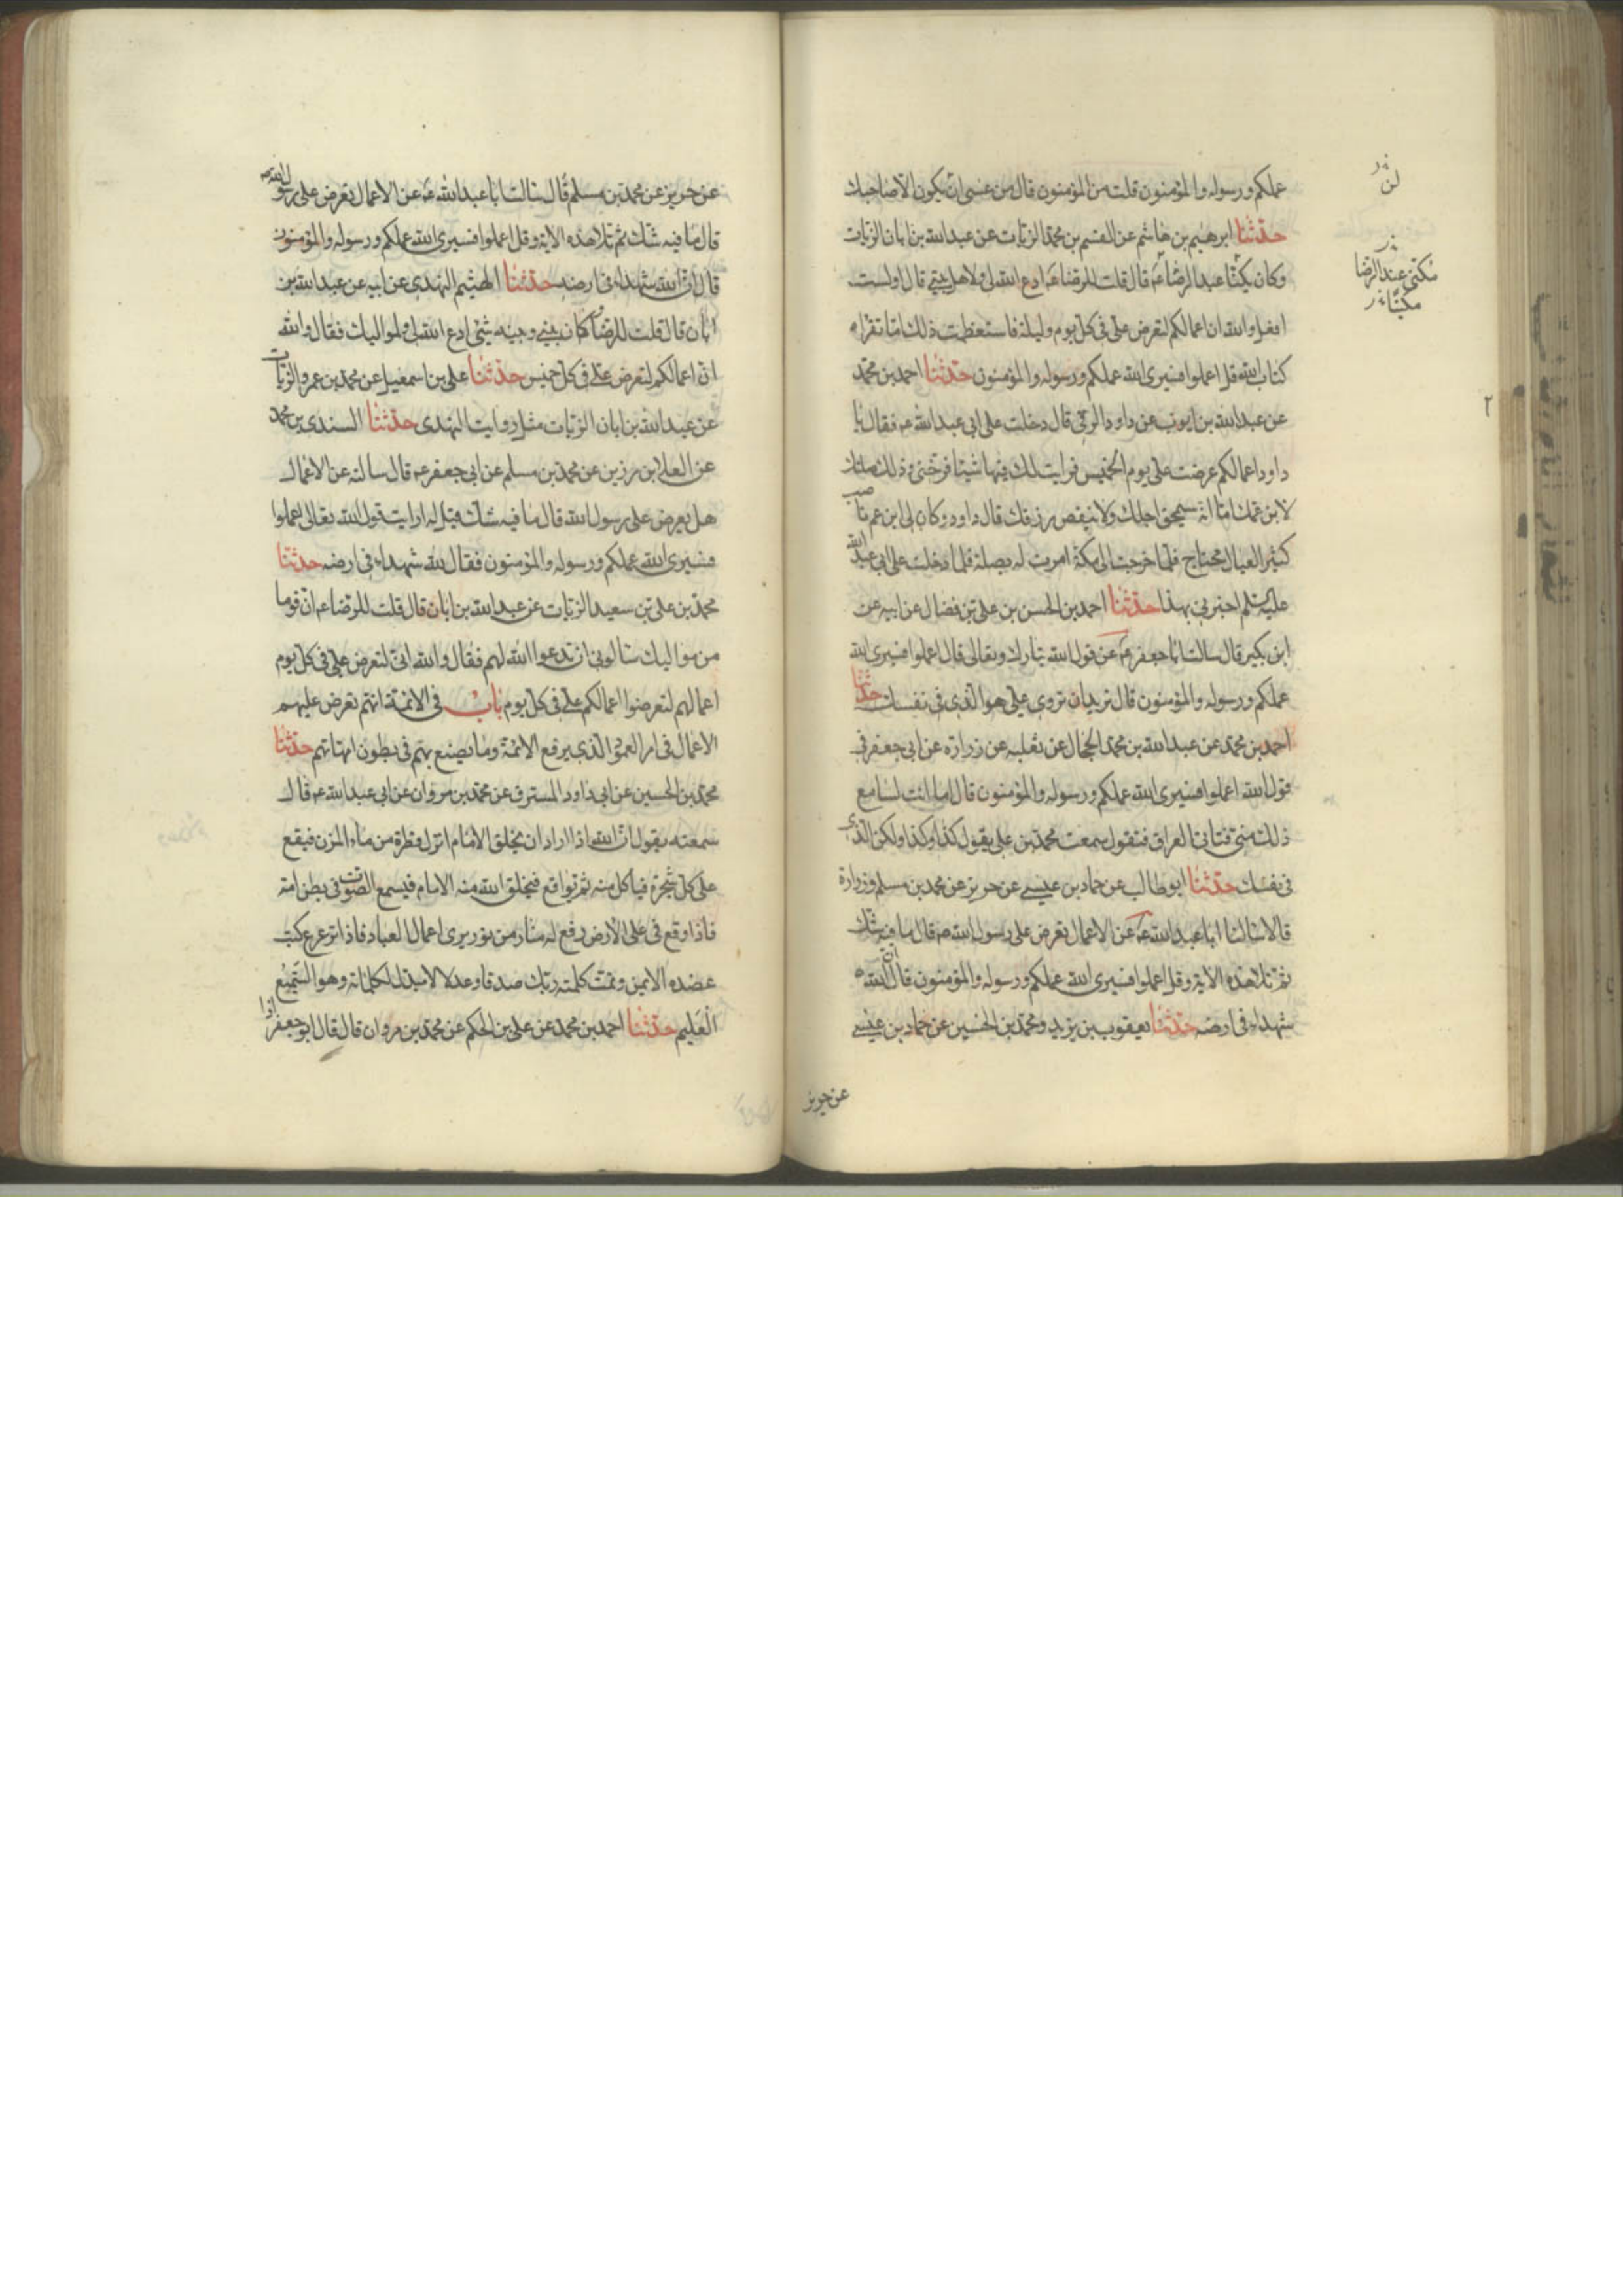 عملكم ورسوله والمؤمنون قلت من المؤمنون قال من عسى ان يكون الا صاحبك
حدثنا ابرهيم بن هاشم عن القسم بن محمد الزيات عن عبدالله بن ابان الزيات
وكان يكنا عبد الرضا ع قال قلت للرضا ع ادع الله لى ولاهل بيتى قال اولست
افعل والله ان اعمالكم لتعرض على فى كل يوم وليلة فاستعظمت ذلك اما تقراء
كتاب الله قل اعملوا فسيرى الله عملكم ورسوله والمؤمنون حدثنا احمد بن محمد
عن عبدالله بن ايوب عن داود الرقى قال دخلت على ابى عبدالله ع فقال يا
داود اعمالكم عرضت على يوم الخميس فرايت لك فيها شيئا فرحنى وذلك صلتك
لابن عمك اما انه سيمحق اجلك ولا ينقص رزقك قال داود وكان لى ابن عم ناصب
كثير العيال محتاج فلما خرجت الى مكة امرت له بصلة فلما دخلت على ابى عبدالله
عليه السلم اخبرنى بهذا حدثنا احمد بن الحسن بن على بن فضال عن ابيه عن
ابن بكير قال سالت ابا جعفر ع عن قول الله تبارك وتعالى قال اعملوا فسيرى الله
عملكم ورسوله والمؤمنون قال تريد ان تروى على هو الذى فى نفسك حدثنا
احمد بن محمد عن عبدالله بن محمد الحجال عن ثعلبه عن زرارة عن ابى جعفر فى
قول الله اعملوا فسيرى الله عملكم ورسوله والمؤمنون قال اما انت لسامع
ذلك منى فتاتى العراق فتقول سمعت محمد بن على يقول كذا وكذا ولكن الذى
فى نفسك حدثنا ابوطالب عن حماد بن عيسى عن حريز عن محمد بن مسلم وزرارة
قالا سالنا ابا عبدالله ع عن الاعمال تعرض على رسول الله ص قال ما فيه شك
ثم تلا هذه الاية وقل اعملوا فسيرى الله عملكم ورسوله والمؤمنون قال ان لله
شهداء فى ارضه حدثنا يعقوب بن يزيد ومحمد بن الحسين عن حماد بن عيسى
عن حريز
لن
مكنى عند الرضا
مكينا
٢
عن حريز عن محمد بن مسلم قال سالت ابا عبدالله ع عن الاعمال تعرض على رسول الله ص
قال ما فيه شك ثم تلا هذه الاية وقل اعملوا فسيرى الله عملكم ورسوله والمؤمنون
قال ان لله شهداء فى ارضه حدثنا الهيثم النهدى عن ابيه عن عبدالله بن
ابان قال قلت للرضا كان بينى وبينه شئ ادع الله لى ولمواليك فقال والله
ان اعمالكم لتعرض على فى كل خميس حدثنا على بن اسمعيل عن محمد بن عمرو الزيات
عن عبدالله بن ابان الزيات مثل روايت النهدى حدثنا السندى بن محمد
عن العلا بن رزين عن محمد بن مسلم عن ابى جعفر ع قال سالته عن الاعمال
هل يعرض على رسول الله قال ما فيه شك قيل له ارايت قول الله تعالى اعملوا
فسيرى الله عملكم ورسوله والمؤمنون فقال لله شهداء فى ارضه حدثنا
محمد بن على بن سعيد الزيات عن عبدالله بن ابان قال قلت للرضا ع ان قوما
من مواليك سالونى ان تدعوا الله لهم فقال والله انى لتعرض على فى كل يوم
اعمالهم لتعرضوا اعمالكم على فى كل يوم باب فى الائمة انهم تعرض عليهم
الاعمال فى امر العمود الذى يرفع الائمة وما يصنع بهم فى بطون امهاتهم حدثنا
محمد بن الحسين عن ابى داود المسترق عن محمد بن مروان عن ابى عبدالله ع قال
سمعته يقول ان الله اذا اراد ان يخلق الامام انزل قطرة من ماء المزن فيقع
على كل شجرة فياكل منه ثم تواقع فيخلق الله منه الامام فيسمع الصوت فى بطن امه
فاذا وقع فى على الارض رفع له منار من نور يرى اعمال العباد فاذا ترعرع كتب
عضده الايمن وتمت كلمة ربك صدقا وعدلا لا مبدل لكلماته وهو السميع
العليم حدثنا احمد بن محمد عن على بن الحكم عن محمد بن مروان قال قال ابوجعفر اذا